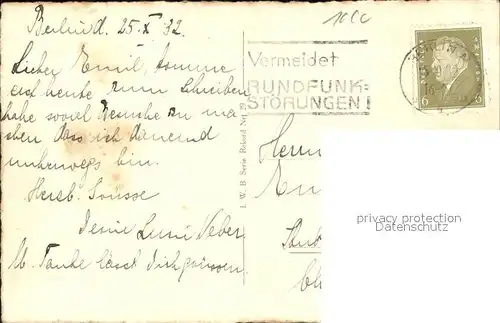 Berlin d. 25.X 32.
Lieber Emil, komme
erst heute zum Schreiben
habe soviel Besuche zu ma-
chen dass ich dauernd
unterwegs bin.
Herzl. Grüsse
Deine Luni Weber
U. Tante lässt Dich grüssen.
Vermeidet
RUNDFUNK-
STÖRUNGEN!
BERLIN
6 6
I. W. B. Serie Rekord Nr. 29
Herrn
privacy protection
Sammler.com